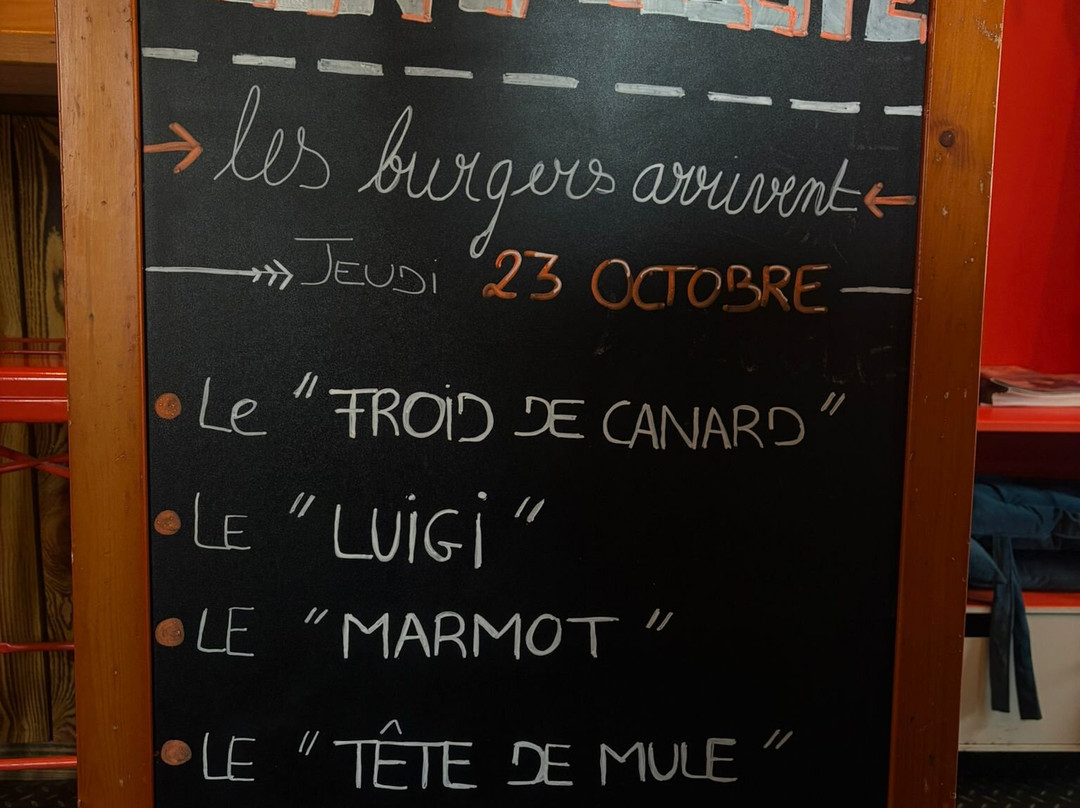 les burgers arrivent
JEUDi 23 OCTOBRE
Le "FROiD DE CANARD"
LE "LUiGi"
LE "MARMOT"
LE "TÊTE DE MULE"